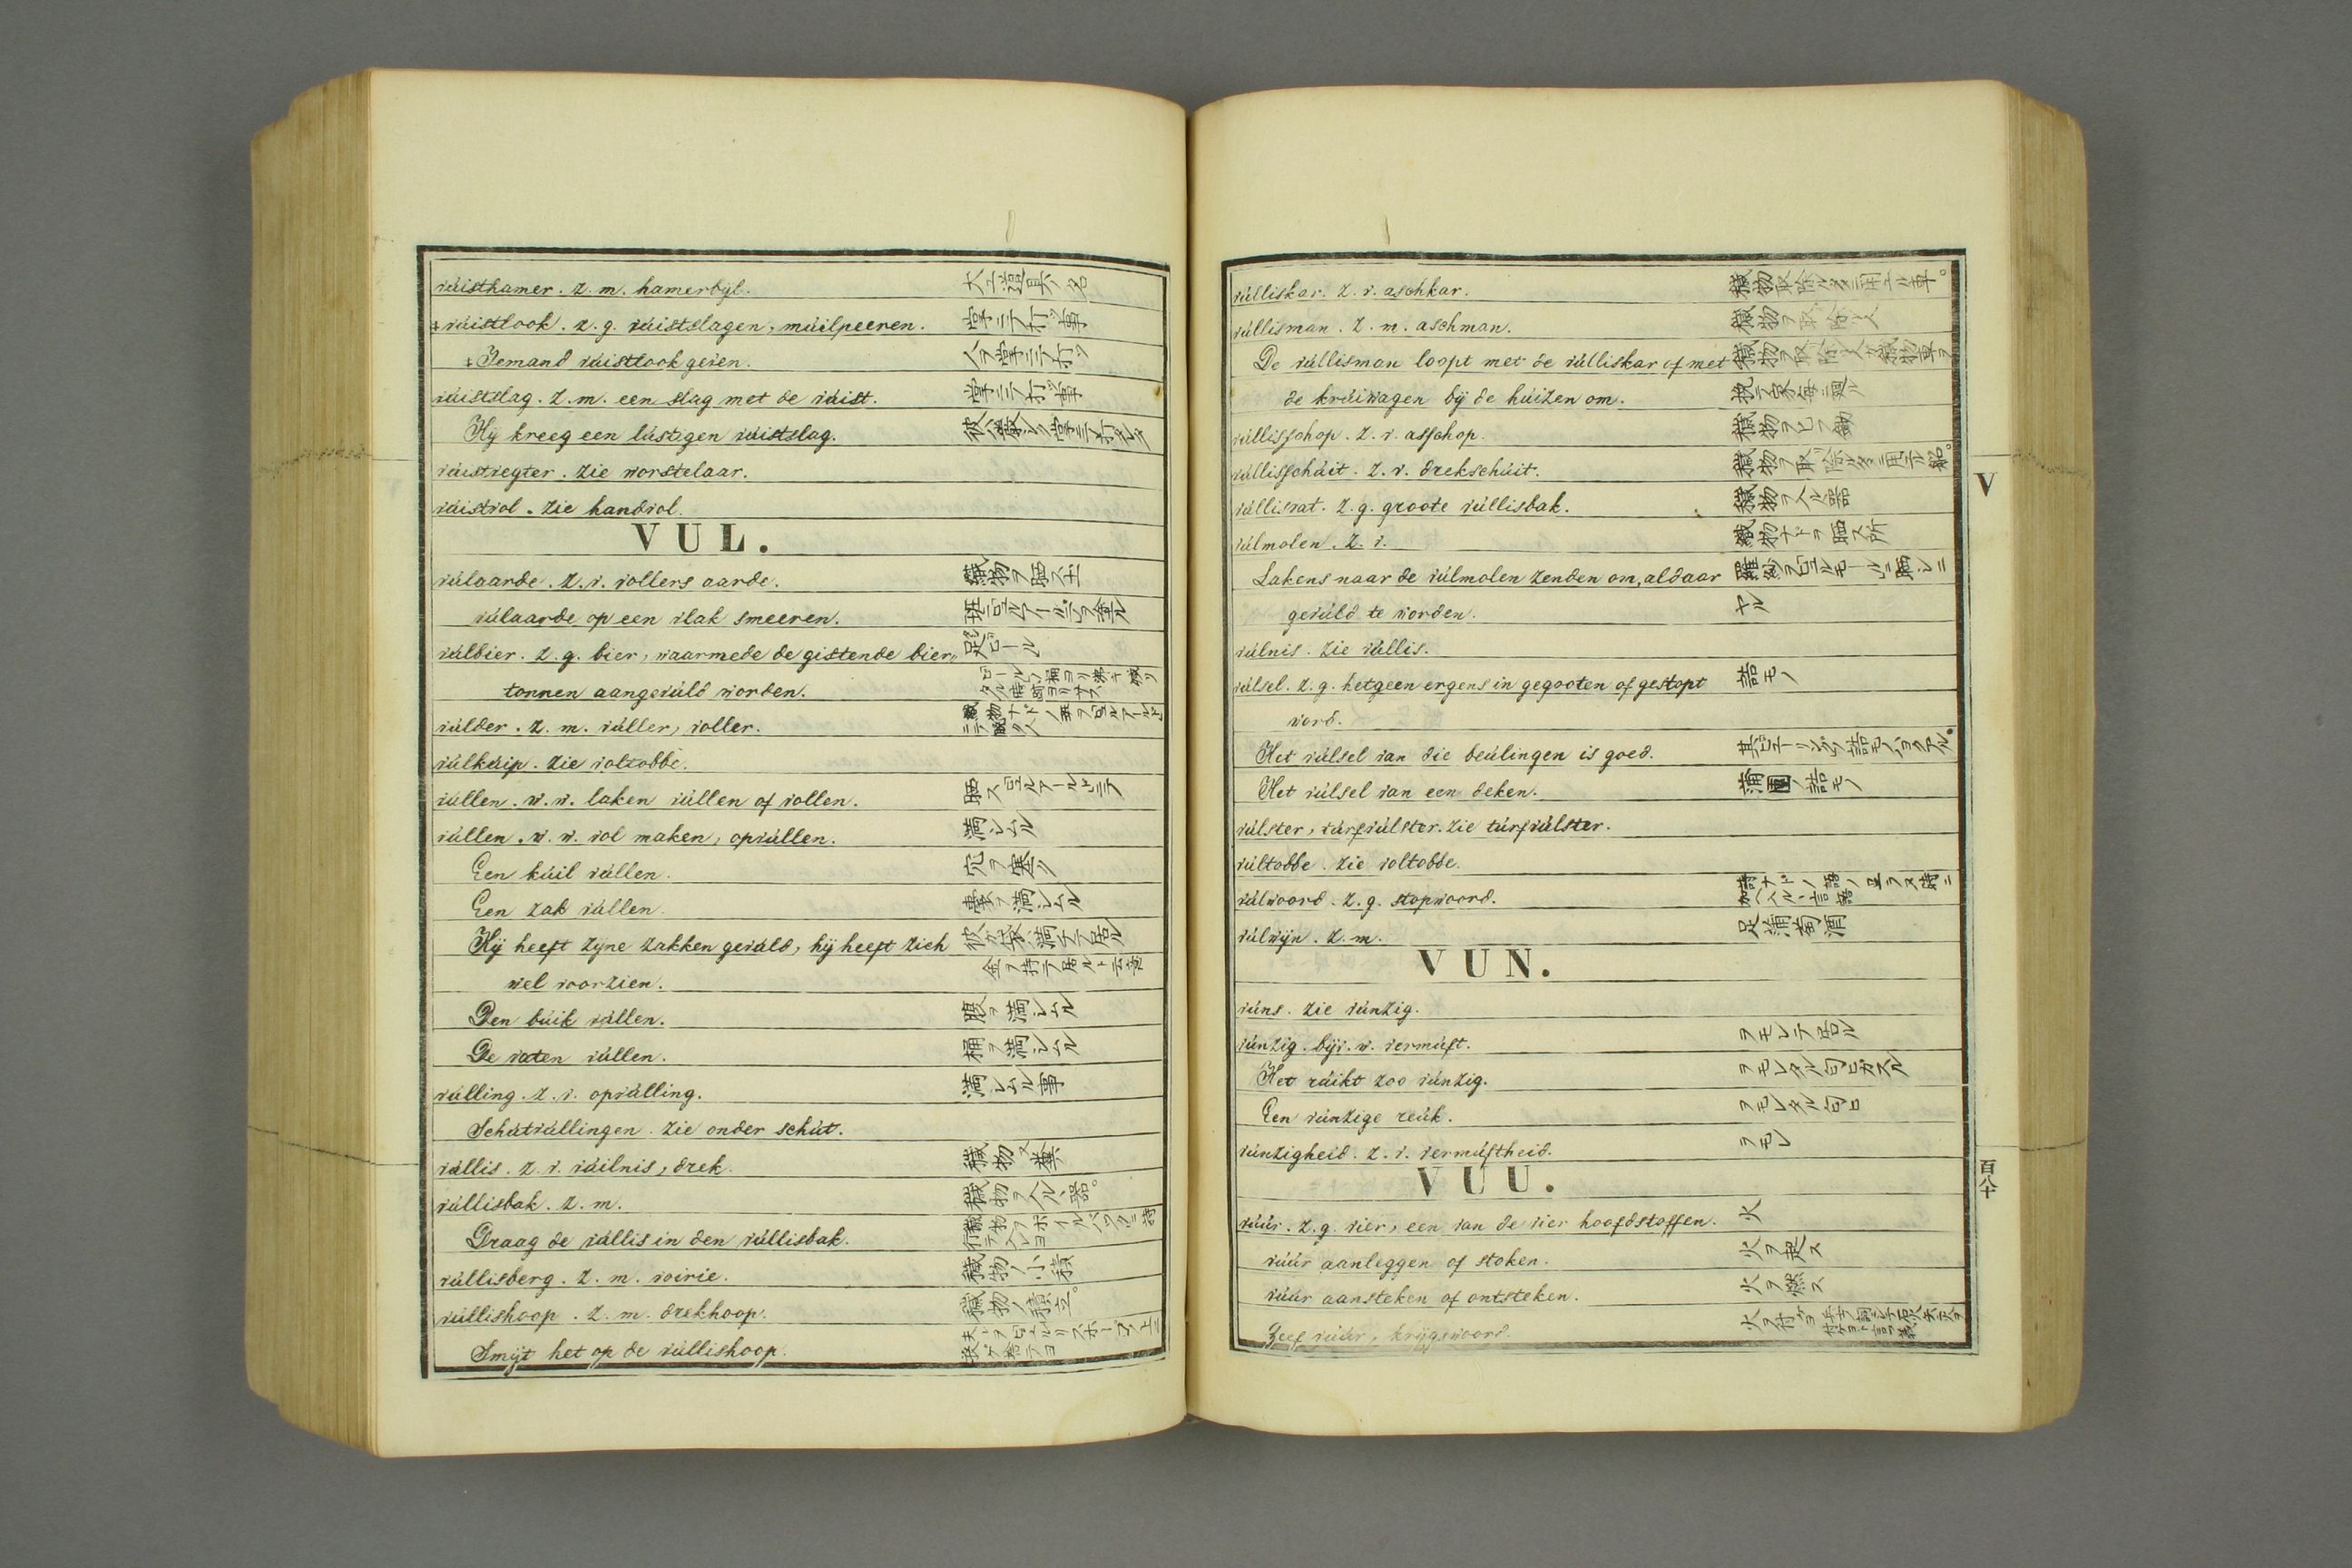 vúisthamer. z. m. hamerbyl. 大工道具ノ名
‡ vúistlook. z. g. vúistslagen, múilpeeren. 掌ニテ打ツ事
‡ Iemand vúistlook geven. 人ヲ掌ニテ打ツ
vúistslag. z. m. een slag met de vúist. 掌ニテ打ツ事
Hij kreeg een lústigen vúistslag.
vúistvegter. zie worstelaar.
vúistvol. zie handvol.
VUL.
vúlaarde. z. v. vollers aarde. 織物ヲ晒ス土
vúlaarde op een vlak smeeren.
vúlbier. z. g. bier, waarmede de gistende bier,, 足ビール
tonnen aangevúld worden.
vúlder. z. m. vúller, voller.
vúlkúip. zie voltobbe.
vúllen. w. w. laken vúllen of vollen.
vúllen. w. w. vol maken, opvúllen. 満シムル
Een kúil vúllen. 穴ヲ塞ク
Een zak vúllen. 嚢ヲ満シムル
Hij heeft zyne zakken gevúld, hij heeft zich 彼ガ袋ヲ満チテ居ル
wel voorzien. 金ヲ持テ居ルト云意
Den búik vúllen. 腹ヲ満シムル
De vaten vúllen. 桶ヲ満シムル
vúlling. z. v. opvúlling. 満シムル事
Schútvúllingen. zie onder schút.
vúllis. z. v. vúilnis, drek. 穢物又糞
vúllisbak. z. m. 穢物ヲ入ル器。
Draag de vúllis in den vúllisbak.
vúllisberg. z. m. voirie. 穢物ノ小積
vúllishoop. z. m. drekhoop. 穢物ノ積立。
Smijt het op de vúllishoop.
vúlliskar. z. v. aschkar. 穢物取除ル為ニ用ユル車。
vúllisman. z. m. aschman. 穢物ヲ取除ク人
De vúllisman loopt met de vúlliskar of met 穢物ヲ取除ク人ガ穢物車ヲ
de krúiwagen bij de húizen om. 挽テ家毎ニ廻ル
vúllisschop. z. v. asschop.
vúllisschúit. z. v. drekschúit. 穢物ヲ取除ル為ニ用ユル船。
vúllisvat. z. g. groote vúllisbak. 穢物ヲ入ル器
vúlmolen. z. v. 織物ナドヲ晒ス所
Lakens naar de vúlmolen zenden om, aldaar
gevúld te worden. ヤル
vúlnis. zie vúllis.
vúlsel. z. g. hetgeen ergens in gegooten of gestopt 詰モノ
word.
Het vúlsel van die beúlingen is goed.
Het vúlsel van een deken. 蒲團ノ詰モノ
vúlster, túrfvúlster. zie túrfvúlster.
vúltobbe. zie voltobbe.
vúlwoord. z. g. stopwoord.
vúlwijn. z. m. 足蒲萄酒
VUN.
vúns. zie vúnzig.
vúnzig. bijv. w. vermúft. ヲモレテ居ル
Het rúikt zoo vúnzig. ヲモレタル匂ヒガスル
Een vúnzige reúk. ヲモレタル匂ヒ
vúnzigheid. z. v. vermúftheid. ヲモレ
VUU.
vúúr. z. g. vier, een van de vier hoofdstoffen. 火
vúúr aanleggen of stoken. 火ヲ起ス
vúúr aansteken of ontsteken. 火ヲ燃ス
Geef vúúr, krijgswoord.
V
百八十